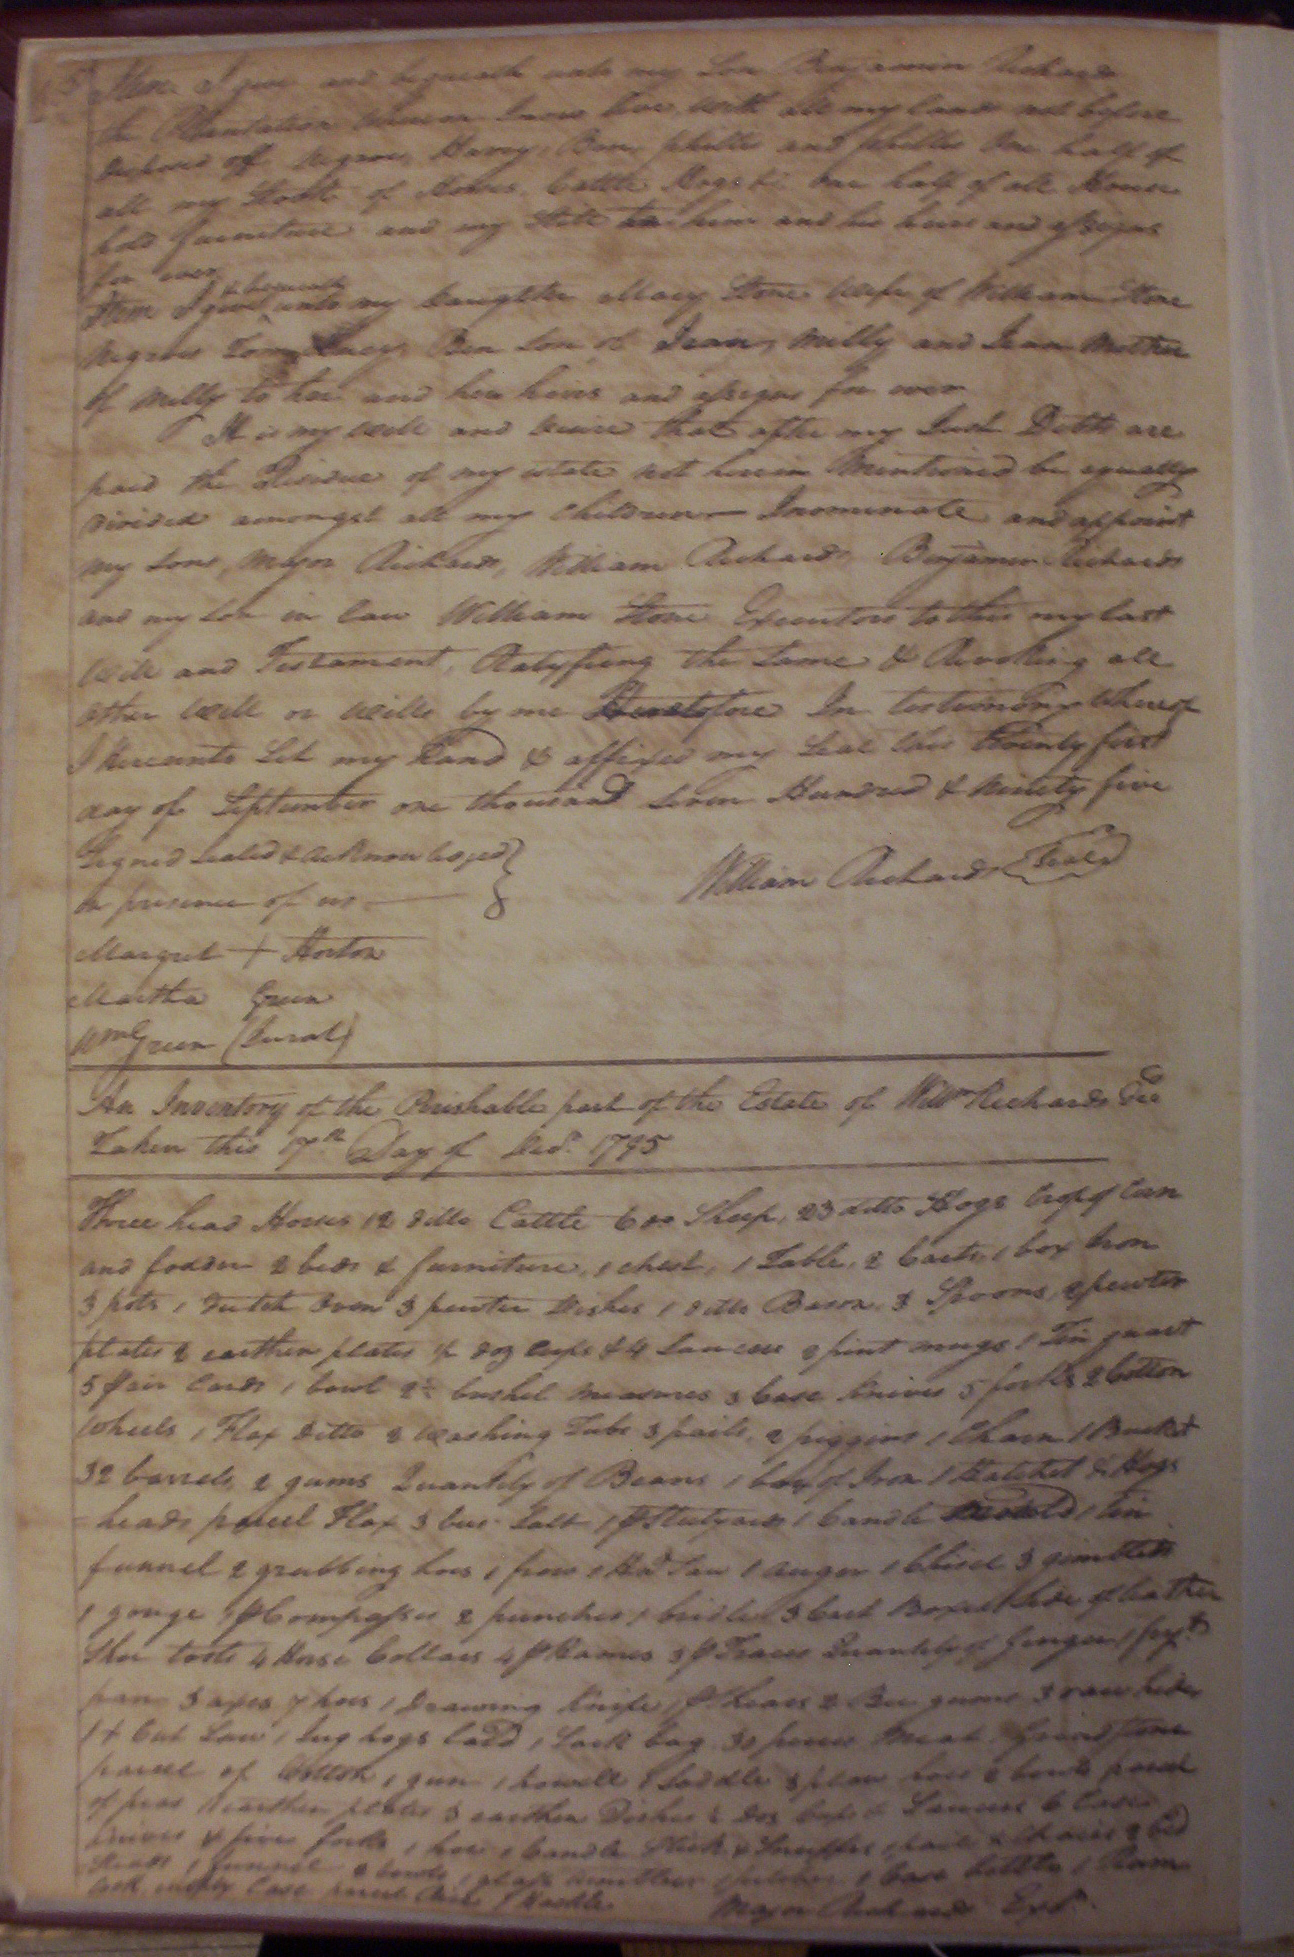 5
Item I give and bequeath unto my Son Benjamin Richards
the Plantation whereon I now live, with all my land not before
disposed off Negroes, Harry, Ben, phillis and phillis One half of
all my Stock of Horses Cattle Hogs &c one half of all House
hold furniture and my Still to him and his heirs and assigns
for ever
Item I give & bequeath unto my daughter Mary Stone wife of William Stone
Negroes Tom Lucy, Ben Son of Jean, Milly and Jean Mother
of Milly to her and her heirs and assigns for ever
It is my will and desire that after my Just Debts are
paid the Residue of my estate not herein Mentioned be equally
divided amongst all my children— I nominate and appoint
my Sons, Major Richards, William Richards, Benjamin Richards
and my Son in law William Stone Executors to this my last
will and Testament, Ratyfieng the Same & Revoking all
other will or wills by me Heretofore In testimony whereof
I Hereunto Set my Hand & affixed my Seal this Twenty first
day of September one thousand Seven Hundred & Ninety five
Signed Sealed & Acknowledged
in presence of us
William Richards Seal
Margret + Horton
Martha Green
Wm Green (Jurat)
An Inventory of the Perishable part of the Estate of Willm Richards Decd
Taken this 17th Day of Decr 1795
Three head Horses 12 ditto Cattle 6 do Sheep, 23 ditto Hogs Crop of Corn
and fodder 2 beds & furniture, 1 chest, 1 Table, 2 Carts, 1 box Iron
3 pots 1 Dutch Oven 3 pewter Dishes 1 ditto Bason, 3 Spoons, 2 pewter
plates 2 earthen plates ½ doz Cups & 4 Saucers 2 pint mugs 1 Tin quart
5 pair Cards 1 bowl 2 ½ bushel Measures 3 Case Knives 5 forks 2 Cotton
Wheels 1 Flax ditto 2 Washing Tubs 3 pails, 2 piggins 1 Churn 1 Bucket
32 barrels, 2 gums Quantity of Beans 1 bar of Iron 1 Hatchet 2 Hogs
= heads parcel Flax 3 bus. Salt 1 p Stilyards 1 Candle Mould 1 tin
funnel 2 grubbing hoes 1 frow 1 Hd Saw 1 auger 1 Chisel 3 gimblets
1 gouge 1 p Compasses 2 punches 1 bridle 3 Cart Boxes hide of leather
Shoe tools 4 Horse Collars 4 p Hames 3 p Traces Quantity of Ginger 1 fryg
pan 3 axes 7 hoes 1 Drawing Knife, 1 p Shears 2 Bee gums 3 raw hides
1 + Cut Saw 1 Jug hogs lard, 1 Sack bag 30 pieces Meat Grindstone
parcel of Cotton 1 gun 1 Saddle 3 plow hoes 2 bowls parcel
of peas earthen plates 3 earthen Dishes ½ doz Cups & Saucers 6 Case
knives & five forks 1 hoe 1 Candle Stick & Snuffers 1 pail 2 Chairs 2 bed
Steads 1 funnel 2 bowls 1 glass tumbler 1 pitcher 1 Case bottle 1 Rum
Cask empty Case parcel
Major Richards Exr